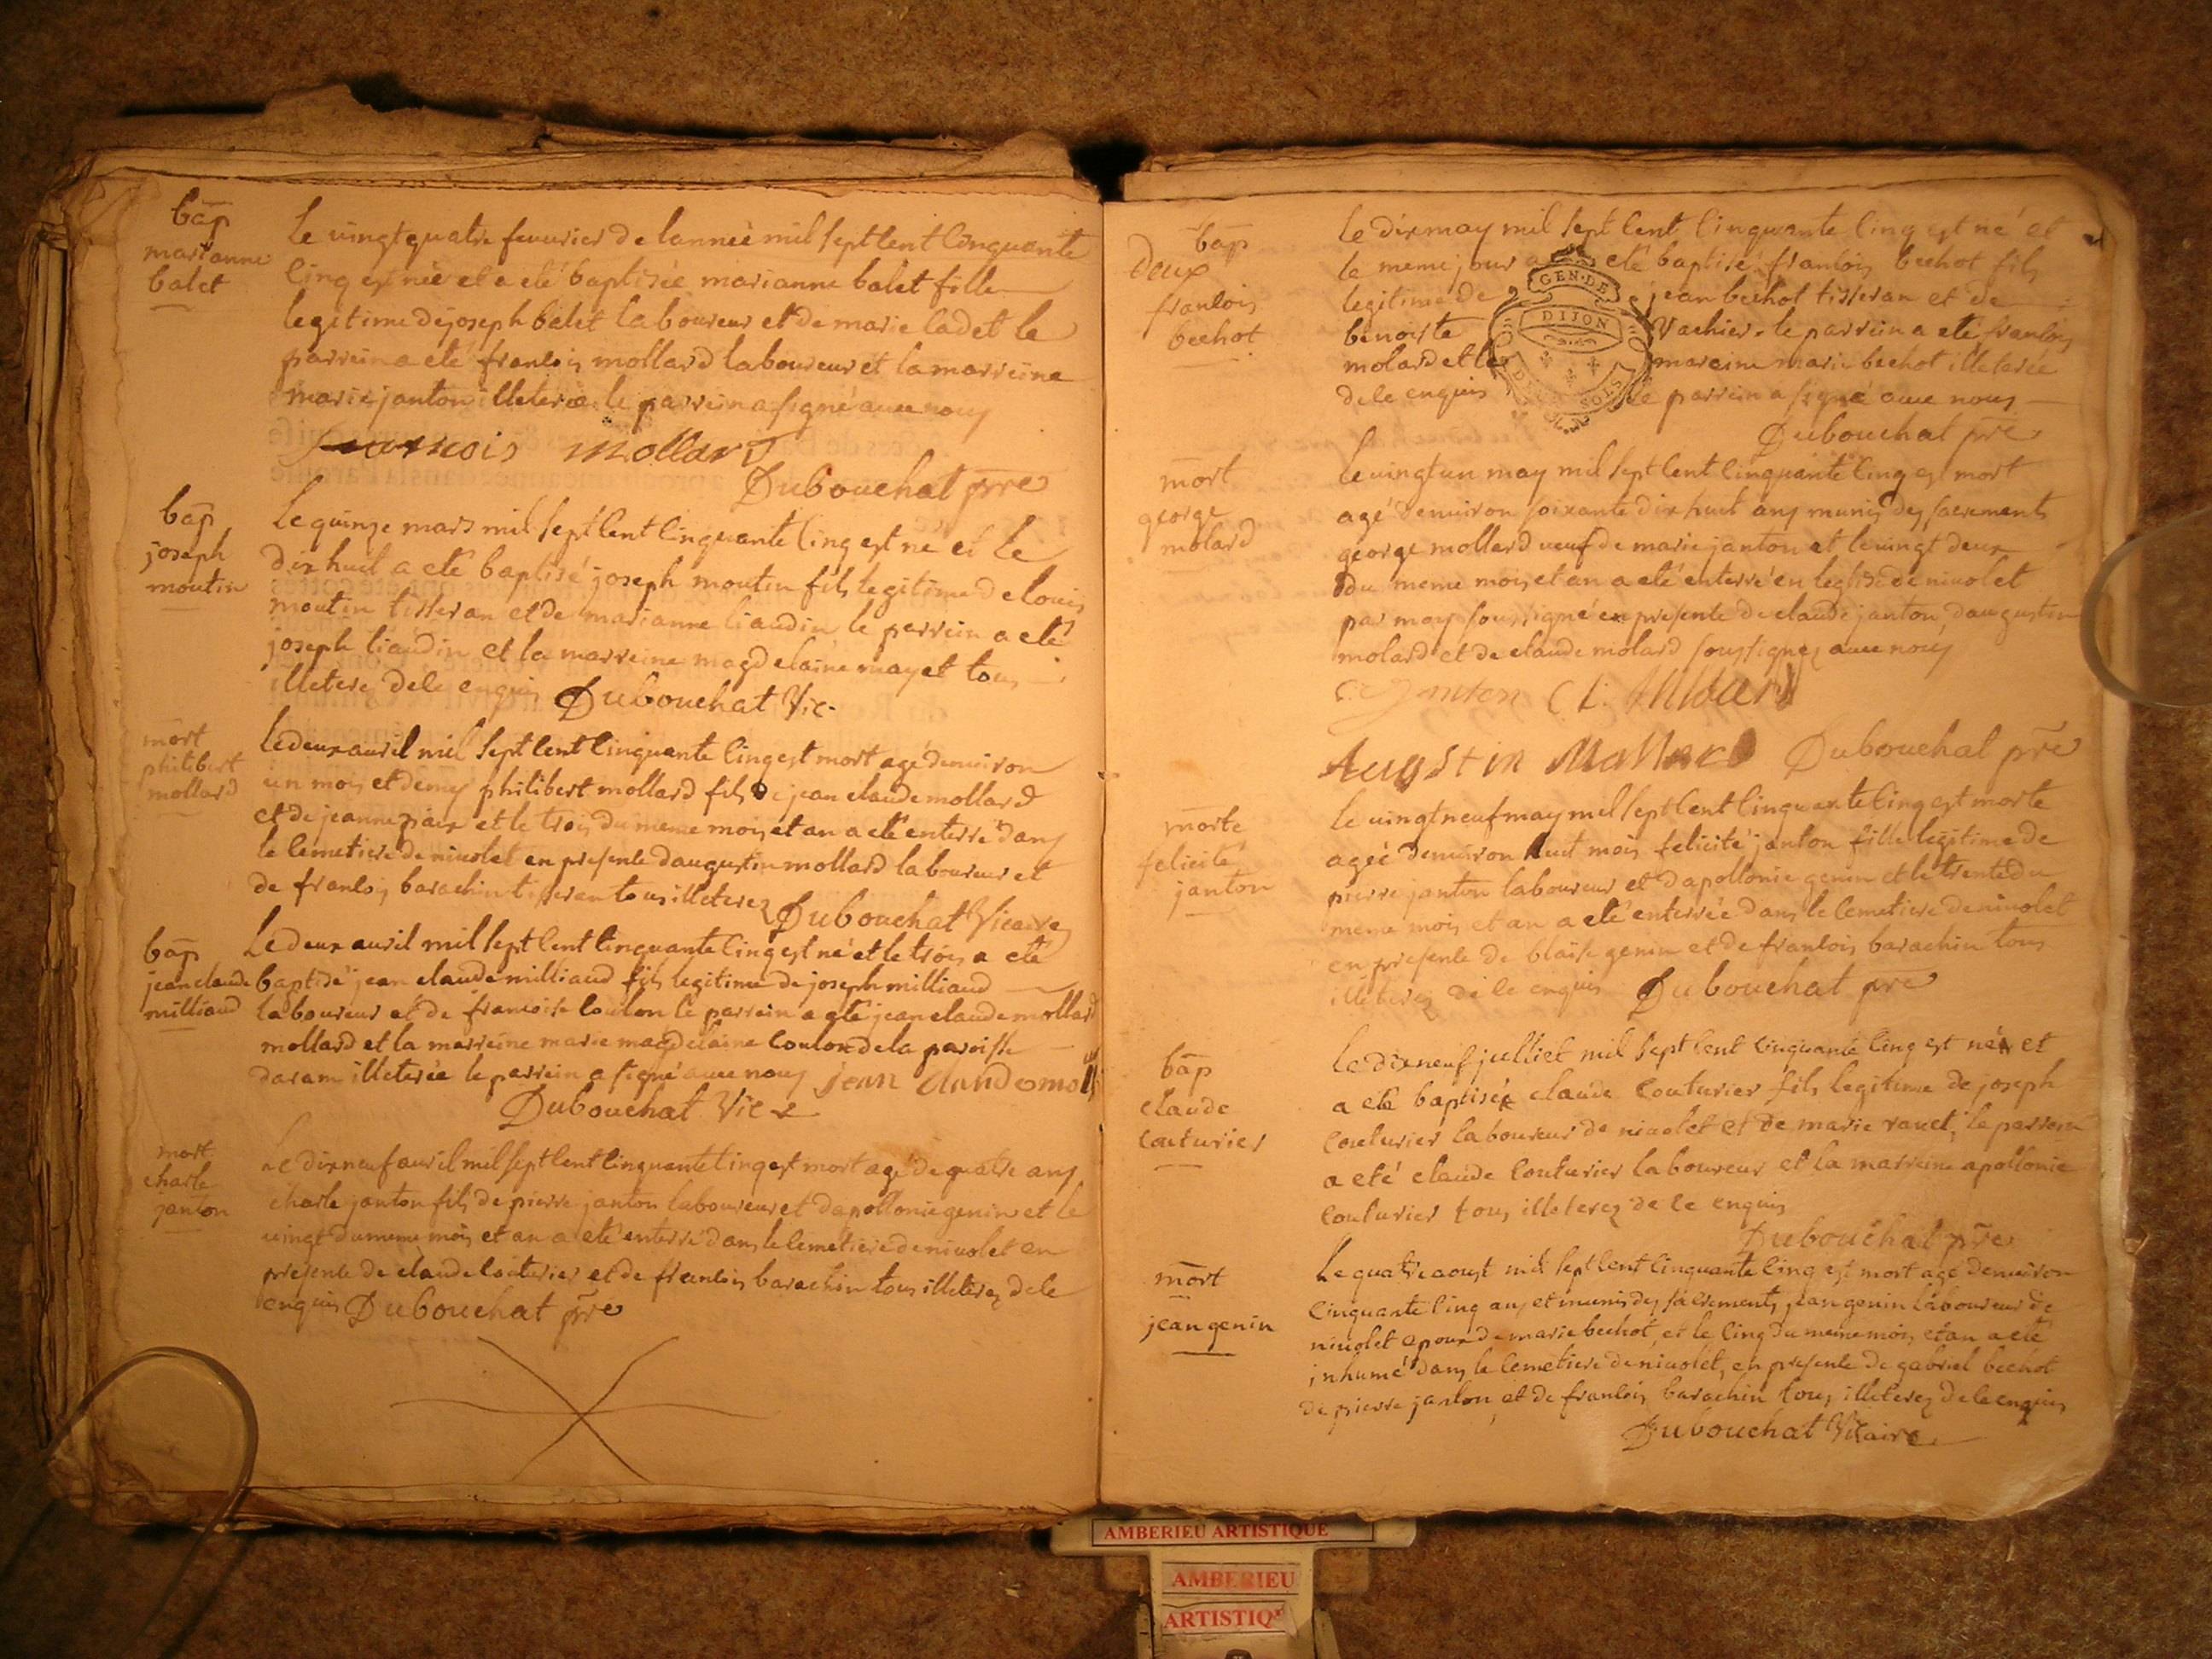 bap
marianne
balet
le vingt quatre fevurier de lanneé mil sept cent cinquante
cinq est neé et a eté baptiseé marianne balet fille
legitime de joseph balet laboureur et de marie cadet le
parrein a eté francois mollard laboureur et la marreine
marie janton illetereé le parrein a signé avec nous
francois mollard
Dubouchat pre
bap
joseph
moutin
le quinze mars mil sept cent cinquante cinq est né et le
dix huit a eté baptisé joseph moutin fils legitime de louis
moutin tisseran et de marianne liaudin le parrein a eté
joseph liaudin et la marreine magdelaine mayet tous
illeterez de ce enquis Dubouchat Vic.
mort
philibert
mollard
le deux avril mil sept cent cinquante cinq est mort agé denviron
un mois et demy philibert mollard fils de jean claude mollard
et de jeanne et le trois du meme mois et an a eté enterré dans
le cemetiere de nivolet en presence daugustin mollard laboureur et
de francois barachin tisseran tous illeterez Dubouchat Vicaire
bap
jean claude
milliaud
le deux avril mil sept cent cinquante cinq est né et le trois a eté
baptisé jean claude milliaud fils legitime de joseph milliaud
laboureur et de francoise coulon le parrein a eté jean claude mollard
mollard et la marreine marie magdelaine coulon de la paroisse
daram illetereé le parrein a signé avec nous jean claude moll
Dubouchat Vic
mort
charle
janton
le dix neuf avril mil sept cent cinquante cinq est mort agé de quatre ans
charle janton fils de pierre janton laboureur et dapollonie genin et le
vingt du meme mois et an a eté enterré dans le cemetiere de nivolet en
presence de claude couturier et de francois barachin tous illeterez de ce
enquis Dubouchat pre
bap
deux
francois
bechot
le dix may mil sept cent cinquante cinq est né et
le meme jour a eté baptisé francois bechot fils
legitime de jean bechot tisseran et de
benoiste Vachier. le parrein a eté francois
molard et la mareine marie bechot illetereé
de ce enquis le parrein a signé avec nous
Dubouchat pre
GEN. DE
DIJON
mort
george
molard
le vingt un may mil sept cent cinquante cinq est mort
agé denviron soixante dix huit ans munis des sacrements
george mollard veuf de marie janton et le vingt deux
du meme mois et an a eté enterré en leglise de nivolet
par moy soussigné en presence de claude janton, daugustin
molard et de claude molard soussignez avec nous
C. Janton C. L. Molard
Augustin Mollard Dubouchat pre
morte
felicité
janton
le vingt neuf may mil sept cent cinquante cinq est morte
ageé denviron huit mois felicité janton fille legitime de
pierre janton laboureur et dapollonie genin et le trente du
meme mois et an a eté enterreé dans le cemetiere de nivolet
en presence de blaise genin et de francois barachin tous
illeterez de ce enquis Dubouchat pre
bap
claude
couturier
le dix neuf julliet mil sept cent cinquante cinq est né et
a eté baptisé claude couturier fils legitime de joseph
couturier laboureur de nivolet et de marie ravet, le parrein
a eté claude couturier laboureur et la marreine apollonie
couturier tous illeterez de ce enquis
Dubouchat pre
mort
jean genin
le quatre aoust mil sept cent cinquante cinq est mort agé denviron
cinquante cinq ans et munis des sacrements jean genin laboureur de
nivolet epoux de marie bechot, et le cinq du meme mois et an a eté
inhumé dans le cemetiere de nivolet, en presence de gabriel bechot
de pierre janton, et de francois barachin tous illeterez de ce enquis
Dubouchat Vicaire
AMBERIEU ARTISTIQUE
AMBERIEU
ARTISTIQ